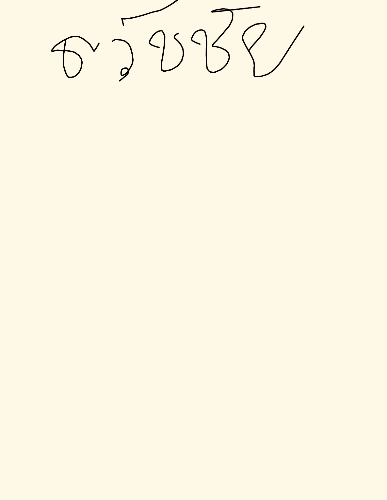 ธวัชชัย